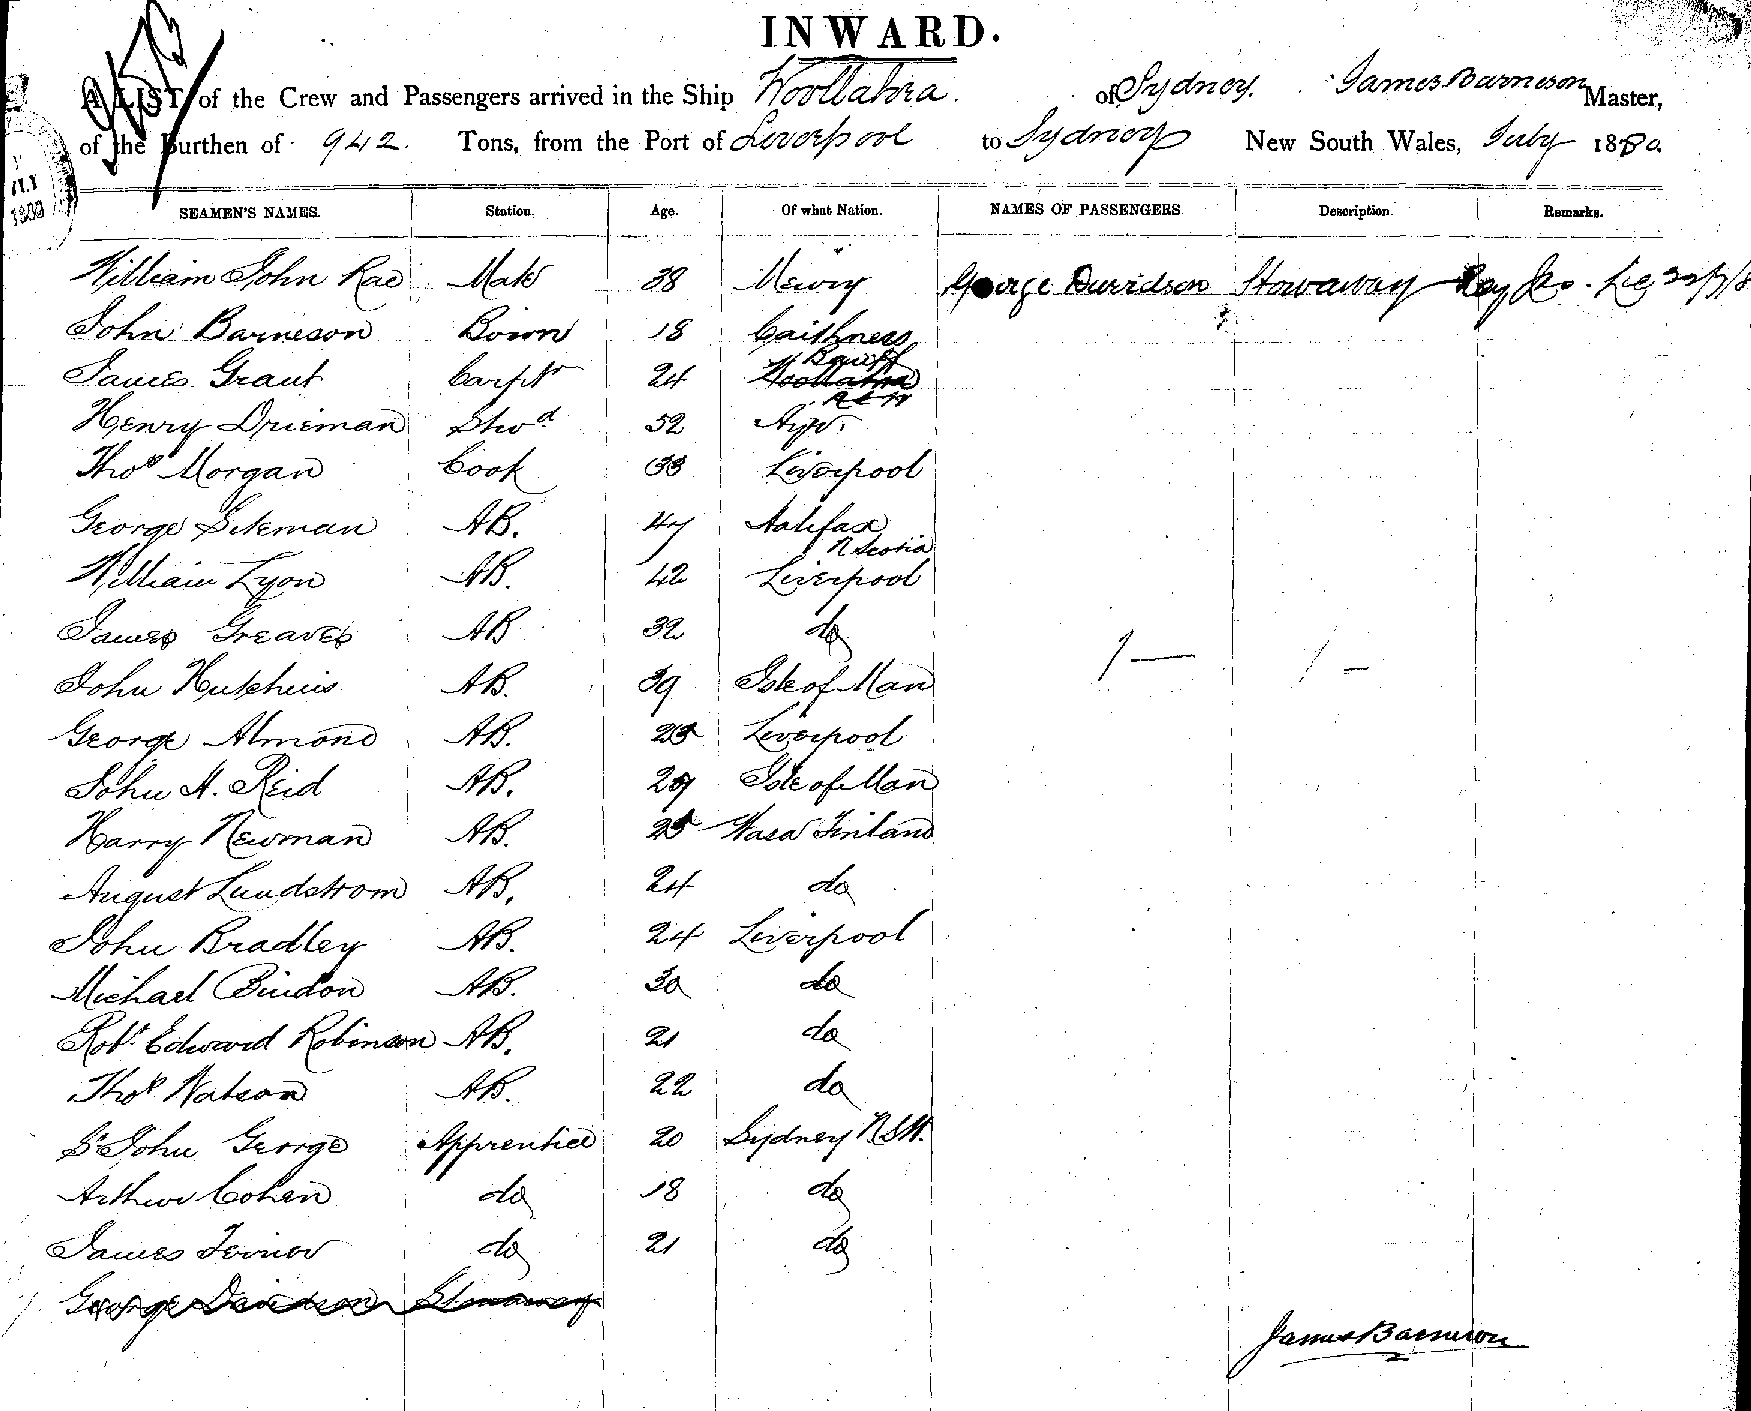 INWARD.
A LIST of the Crew and Passengers arrived in the Ship Woollahra. of Sydney. James Barneson Master,
of the Burthen of 942. Tons, from the Port of Liverpool to Sydney New South Wales, July 1880.
SEAMEN'S NAMES. Station. Age. Of what Nation. NAMES OF PASSENGERS Description. Remarks.
William John Rae Mate 38 Newry George Davidson Stowaway
John Barneson Bosun 18 Caithness
Banff
James Grant Carptr 24 Woollahra
Henry Drieman Stwd 52 Ayr.
Thos Morgan Cook 33 Liverpool
George Siteman AB. 47 Halifax
N Scotia
William Lyon AB. 42 Liverpool
James Greaves AB 32 do
John Hutchins AB. 39 Isle of Man
George Almond AB. 25 Liverpool
John H. Reid AB. 29 Isle of Man
Harry Newman AB. 25 Wasa Finland
August Lundstrom AB. 24 do
John Bradley AB. 24 Liverpool
Michael Bindon AB. 30 do
Robt. Edward Robinson AB. 21 do
Thos Watson AB. 22 do
St John George Apprentice 20 Sydney NSW.
Arthur Cohen do 18 do
James do 21 do
George Davidson Stowaway
James Barneson